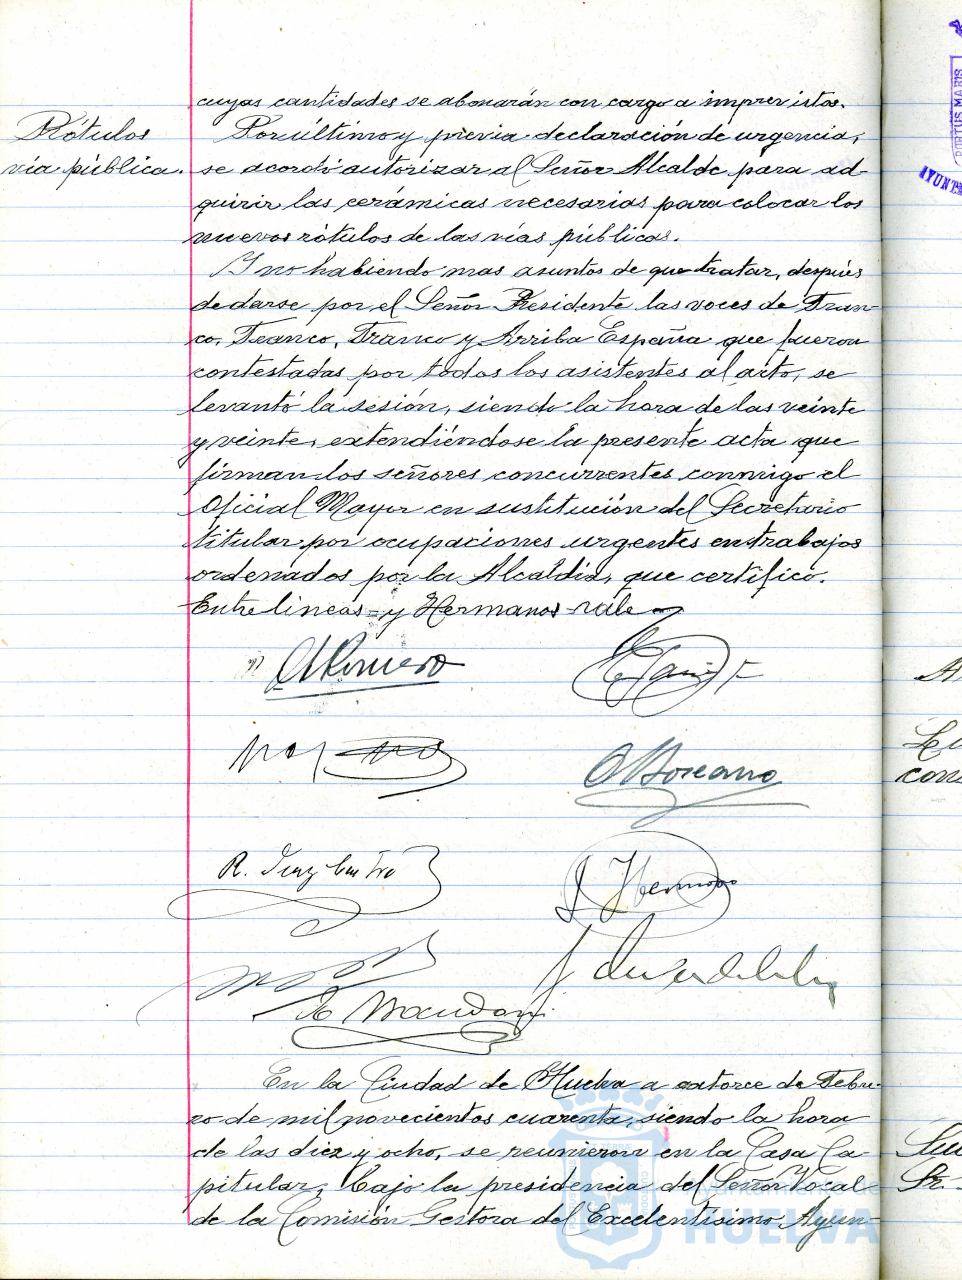 cuyas cantidades se abonarán con cargo a imprevistos.
Rótulos
vía pública.
Por último y previa declaración de urgencia,
se acordó autorizar al Señor Alcalde para ad-
quirir las cerámicas necesarias para colocar los
nuevos rótulos de las vías públicas.
Y no habiendo mas asuntos de que tratar, después
de darse por el Señor Presidente las voces de Fran-
co, Franco, Franco y Arriba España que fueron
contestadas por todos los asistentes al acto, se
levantó la sesión, siendo la hora de las veinte
y veinte, extendiéndose la presente acta que
firman los señores concurrentes conmigo el
Oficial Mayor en sustitución del Secretario
titular por ocupaciones urgentes en trabajos
ordenados por la Alcaldía, que certifico.
Entre lineas = y Hermanos = vale
R. Diaz Castro
J. Hermoso
En la Ciudad de Huelva a catorce de Febre-
ro de mil novecientos cuarenta, siendo la hora
de las diez y ocho, se reunieron en la Casa Ca-
pitular, bajo la presidencia del Señor Vocal
de la Comisión Gestora del Excelentísimo Ayun-
Ayuntamiento de
HUELVA
PORTUS MARIS
AYUNT